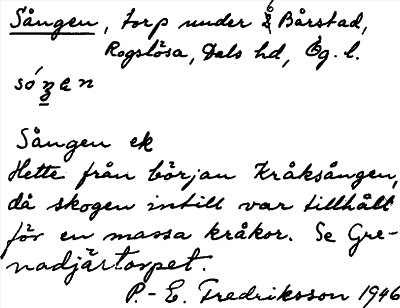 Sången, torp under Bårstad,
Rogslösa, Dals hd, Ög. l.
sóŋen
Sången ek
Hette från början Kråksången,
då skogen intill var tillhålt
för en massa kråkor. Se Gre-
nadjärtorpet.
P.-E. Fredriksson 1946